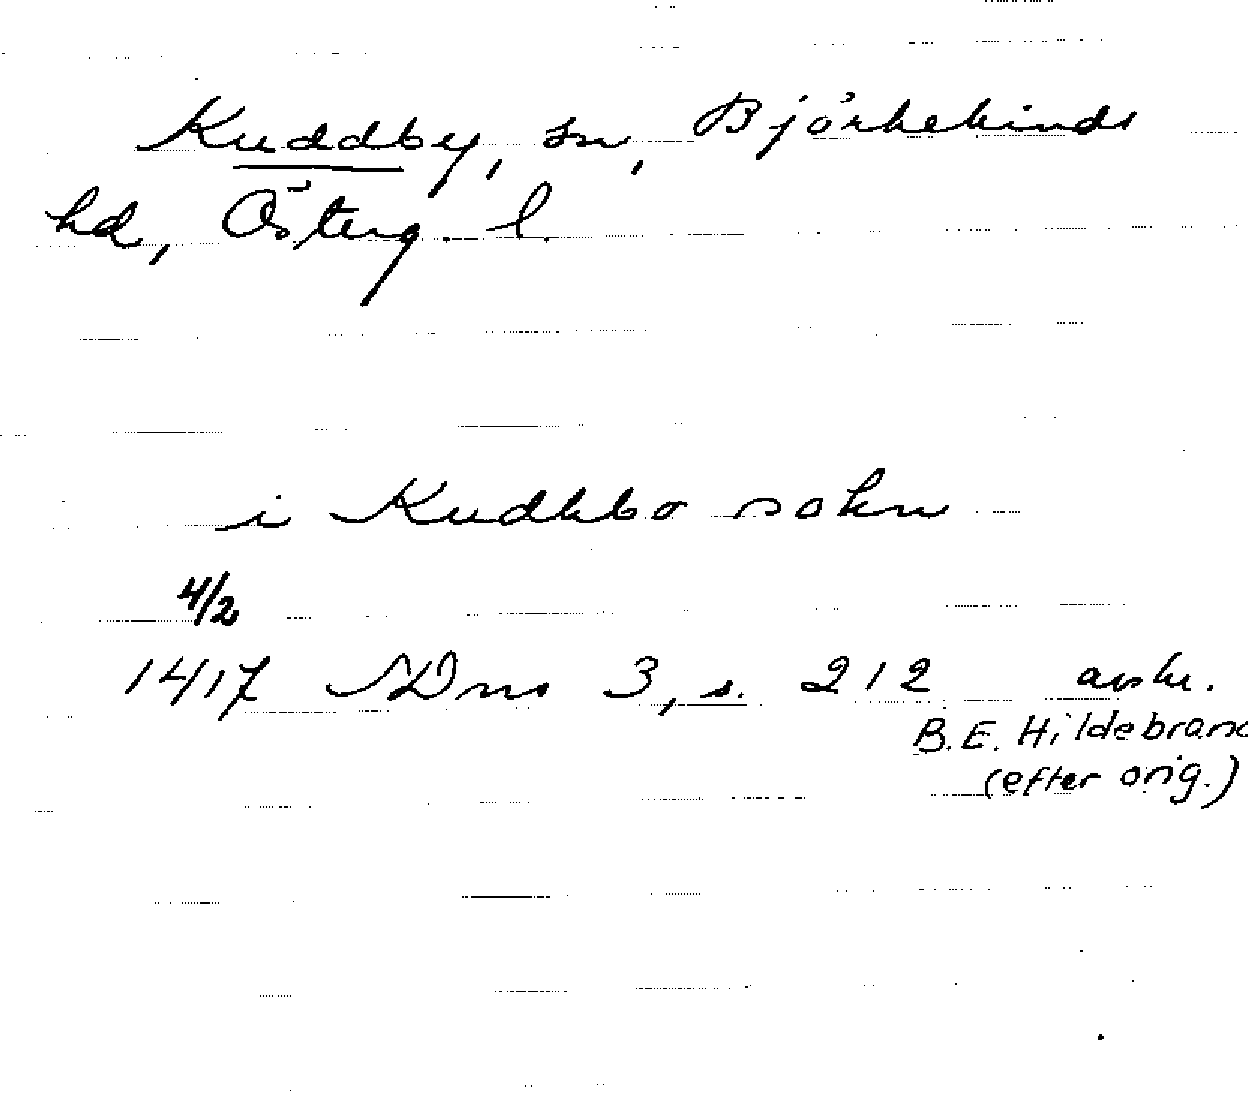 Kuddby, sn, Björkekinds
hd, Österg. l.
i Kudhbo sokn
4/2
1417 SDns 3, s. 212 avskr.
B. E. Hildebrand
(efter orig.)